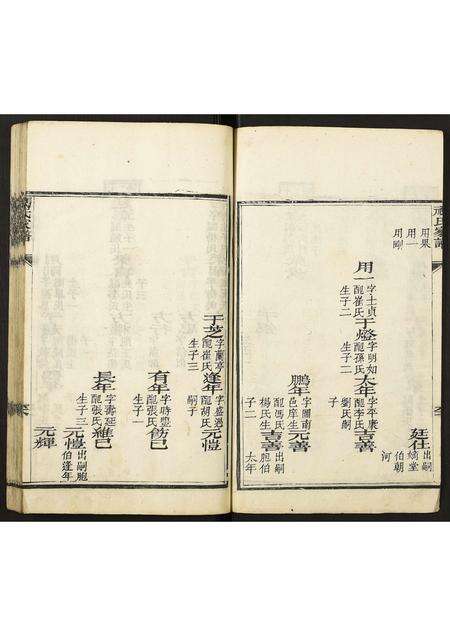 氏家譜
廷仕
出嗣
嫡堂
伯朝
河
用果
用一
用剛
用一
字士貞
配崔氏
生子二
于燈
字明如
配孫氏
生子二
太年
字平康
配李氏
劉氏嗣
子
吉善
鵬年
字圖南
邑庠生
配馮氏
楊氏生
子二
元善
吉善
出嗣
胞伯
太年
于芝
字蘭亭
配崔氏
生子三
逢年
字盛遇
配胡氏
嗣子
元愷
有年
字時豐
配張氏
生子一
長年
字壽延
配張氏
生子三
元愷
出嗣胞
伯逢年
元輝